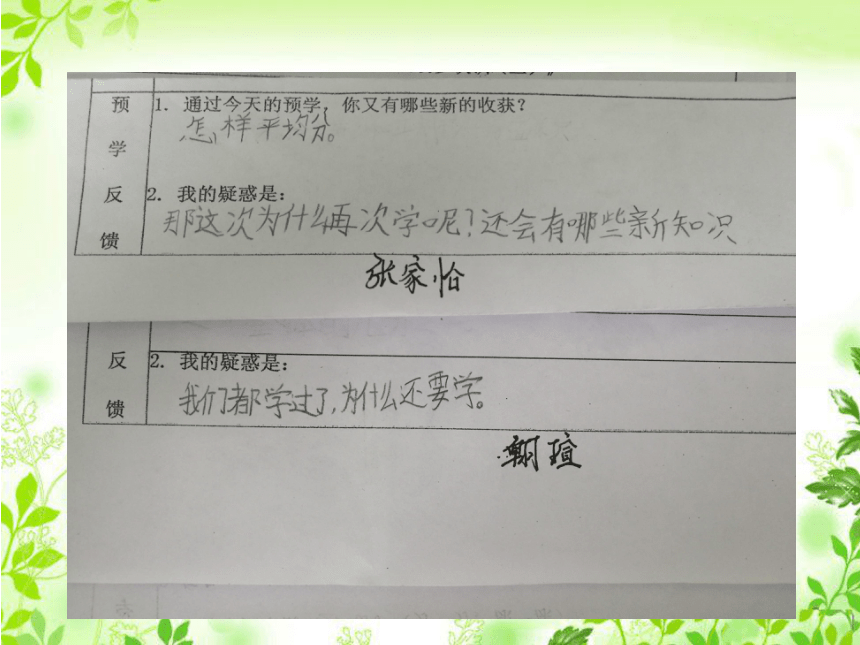 预
学
反
馈
1. 通过今天的预学，你又有哪些新的收获？
怎样平均分。
2. 我的疑惑是：
那这次为什么再次学呢？还会有哪些新知识
张家怡
反
馈
2. 我的疑惑是：
我们都学过了，为什么还要学。
瑄